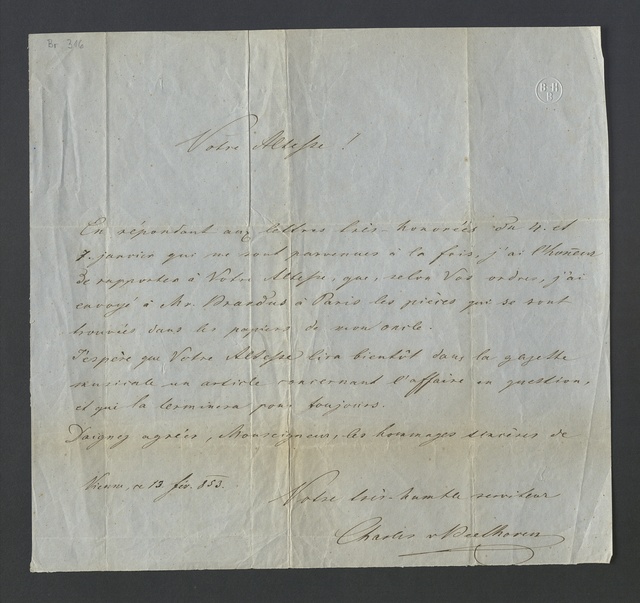 Br. 316
B-H
B
Votre Altesse !
En répondant aux lettres très-honorées du 4. et
7. janvier qui me sont parvenues à la fois, j'ai l'honneur
de rapporter à Votre Altesse, que, selon Vos ordres, j'ai
envoyé à Mr. Brandus à Paris les pièces qui se sont
trouvées dans les papiers de mon oncle.
J'espère que Votre Altesse lira bientôt dans la gazette
musicale un article concernant l'affaire en question,
et qui la terminera pour toujours.
Daignez agréer, Monseigneur, les hommages sincères de
Vienne, ce 13. fév. 853.
Votre très-humble serviteur
Charles v Beethoven